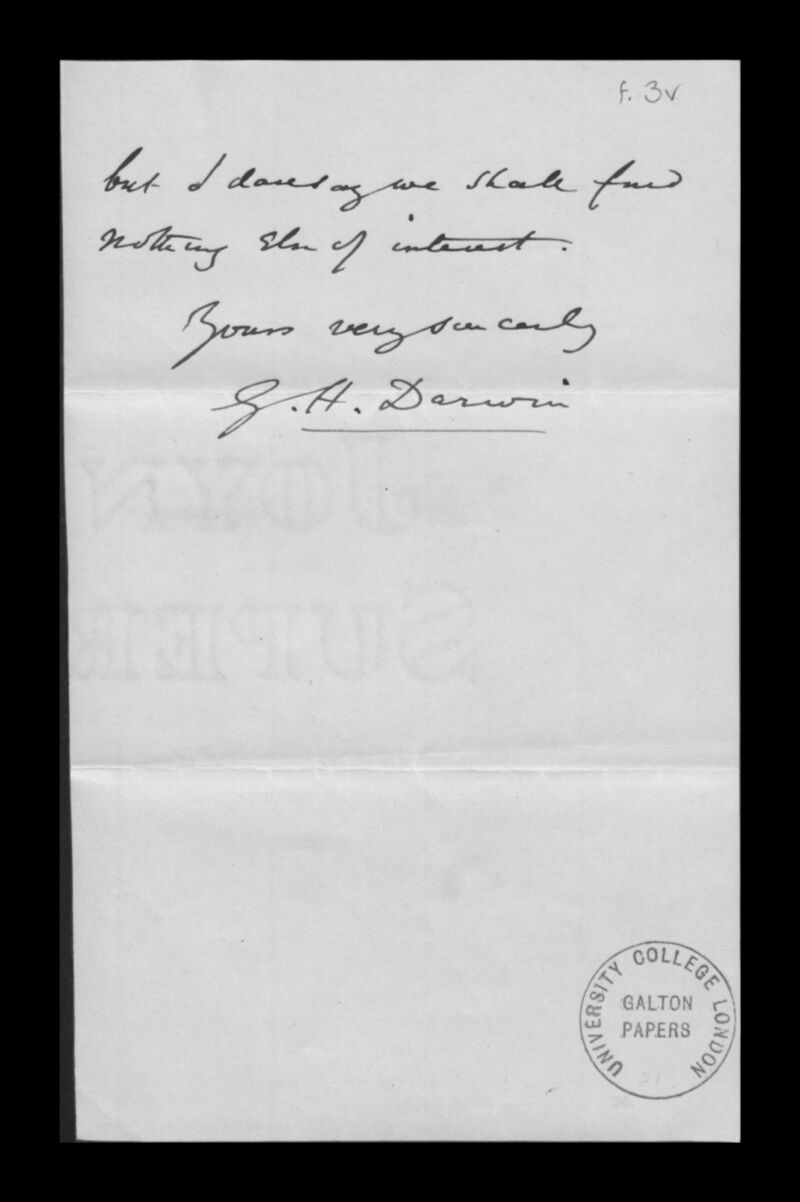 f. 3v
but I daresay we shall find
nothing else of interest.
Yours very sincerely
G. H. Darwin
JOYN
SUPER
UNIVERSITY COLLEGE LONDON
GALTON
PAPERS